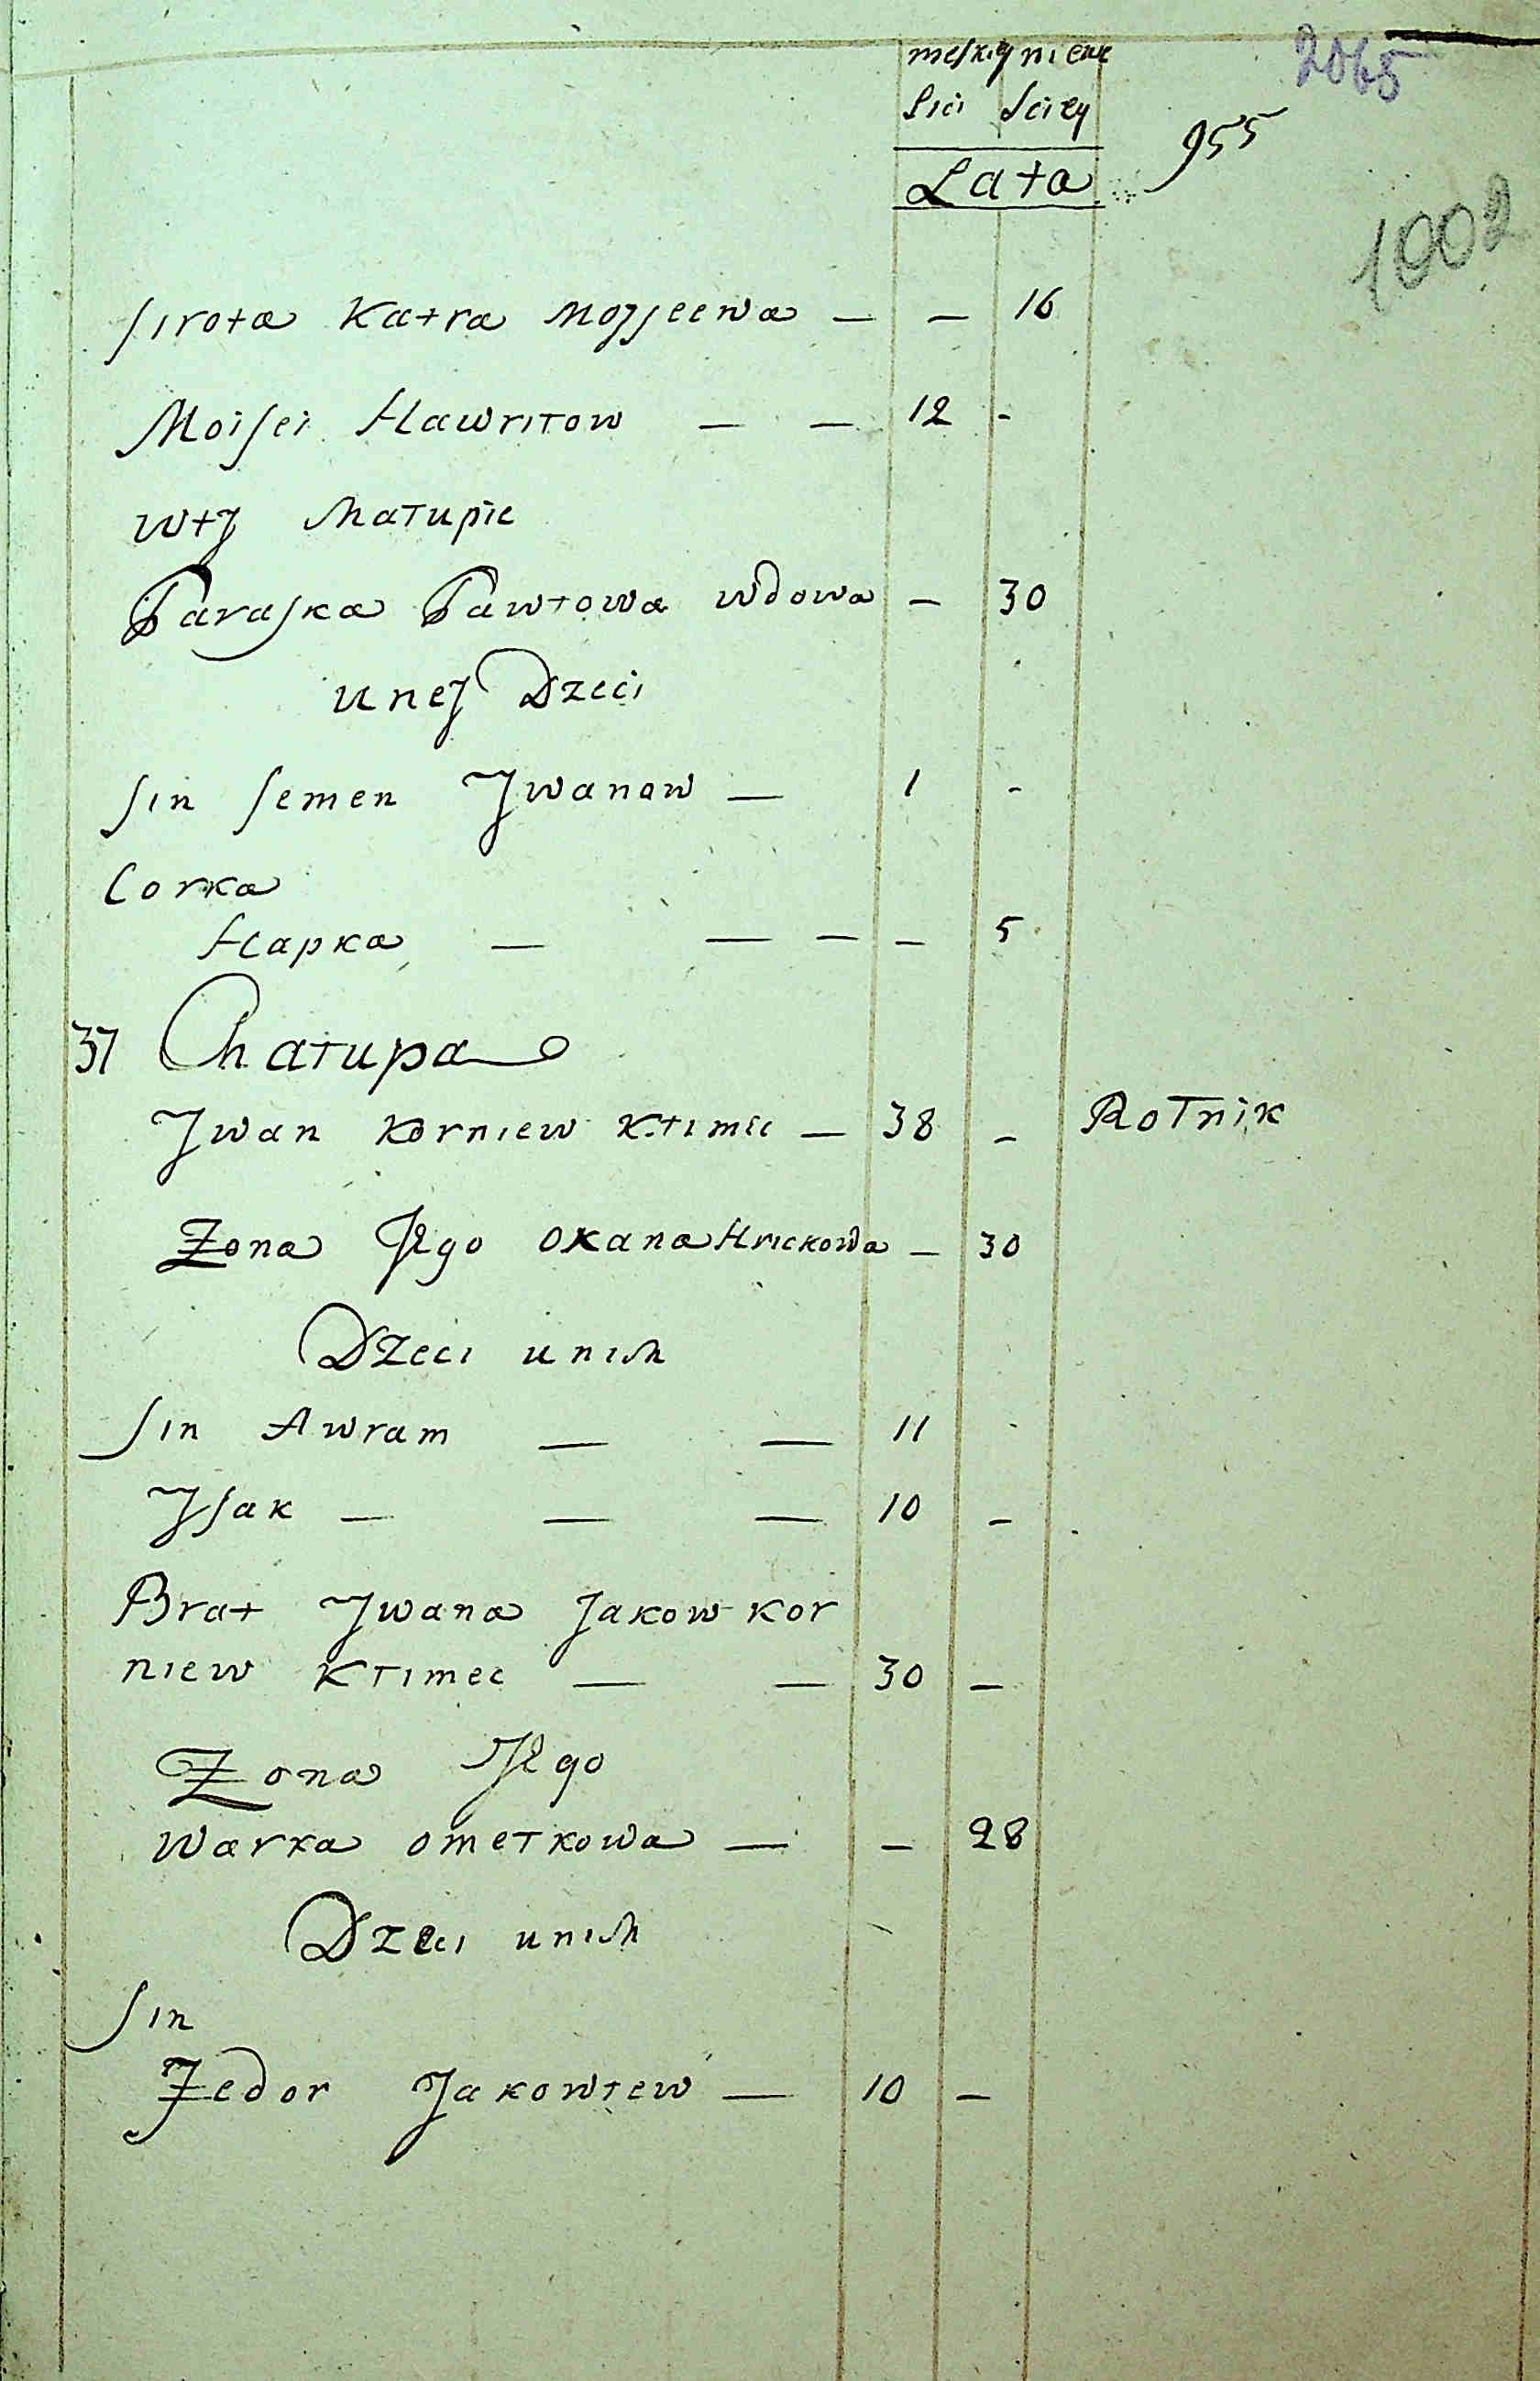 meskiy niewe
Płci Sciey
Lata
2065
955
1002
Sirota Katra Mojseewa — — 16
Moisei Hawriłow — — 12 -
w tj Chałupie
Paraska Pawłowa wdowa — 30
u nej Dzeci
Sin Semen Jwanow — 1 -
Corka
Hapka — — — — 5
37 Chałupa
Jwan Korniew Klimec — 38 — Rolnik
Żona Jego Oxana Hrickowa — 30
Dzeci u nich
Sin Awram — — 11
Jsak — — — 10 —
Brat Jwana Jakow Kor
niew Klimec — — 30 —
Żona Jego
Warka Omelkowa — — 28
Dzeci u nich
Sin
Fedor Jakowlew — 10 —